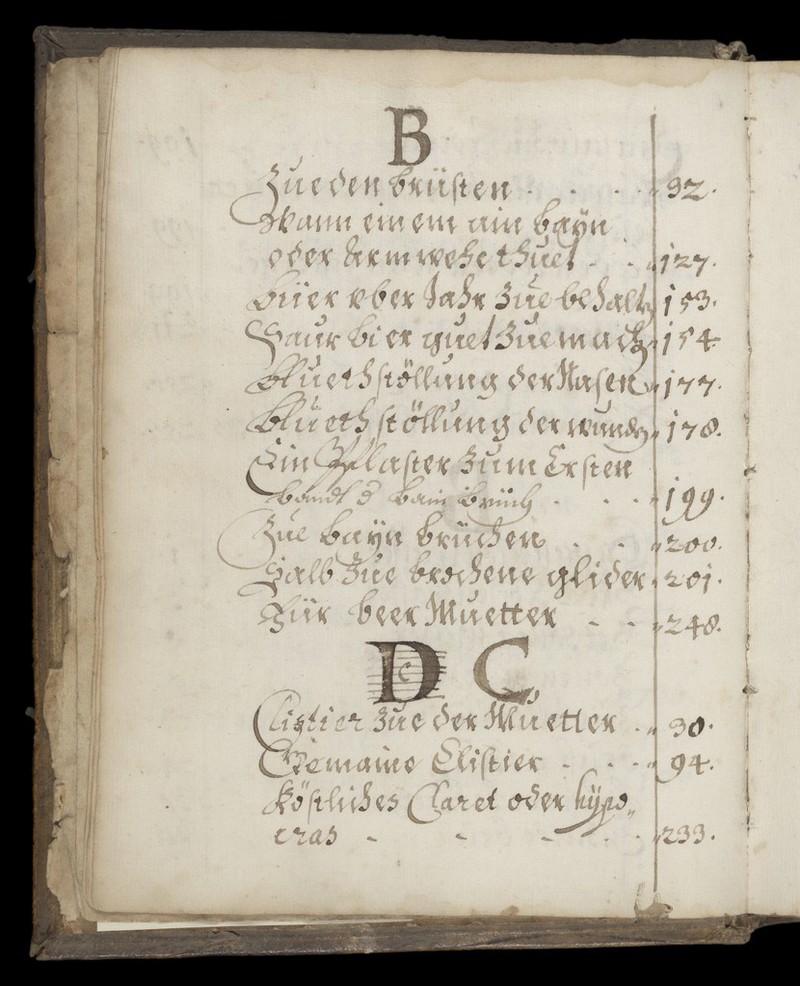 B
Zue den brüsten - - - 92.
Wann einem ain bayn
oder Arm wehe thuet - - 127.
Bier vber Jahr Zue behalten 153.
Saur bier guet Zue mach 154.
Bluethstöllung der Nasen 177.
Bluethstöllung der wunden 178.
Ein Pflaster Zum Ersten
bandt d bain brüch - - - 199.
Zue bayn brüchen - - 200.
Salb Zue brochene glider 201.
Für beer Muetter - - 248.
D C
Clistier Zue der Muetter - 30.
Gemaine Clistier - - - 94.
Köstliches Claret oder hÿpo„
cras - - - - 233.